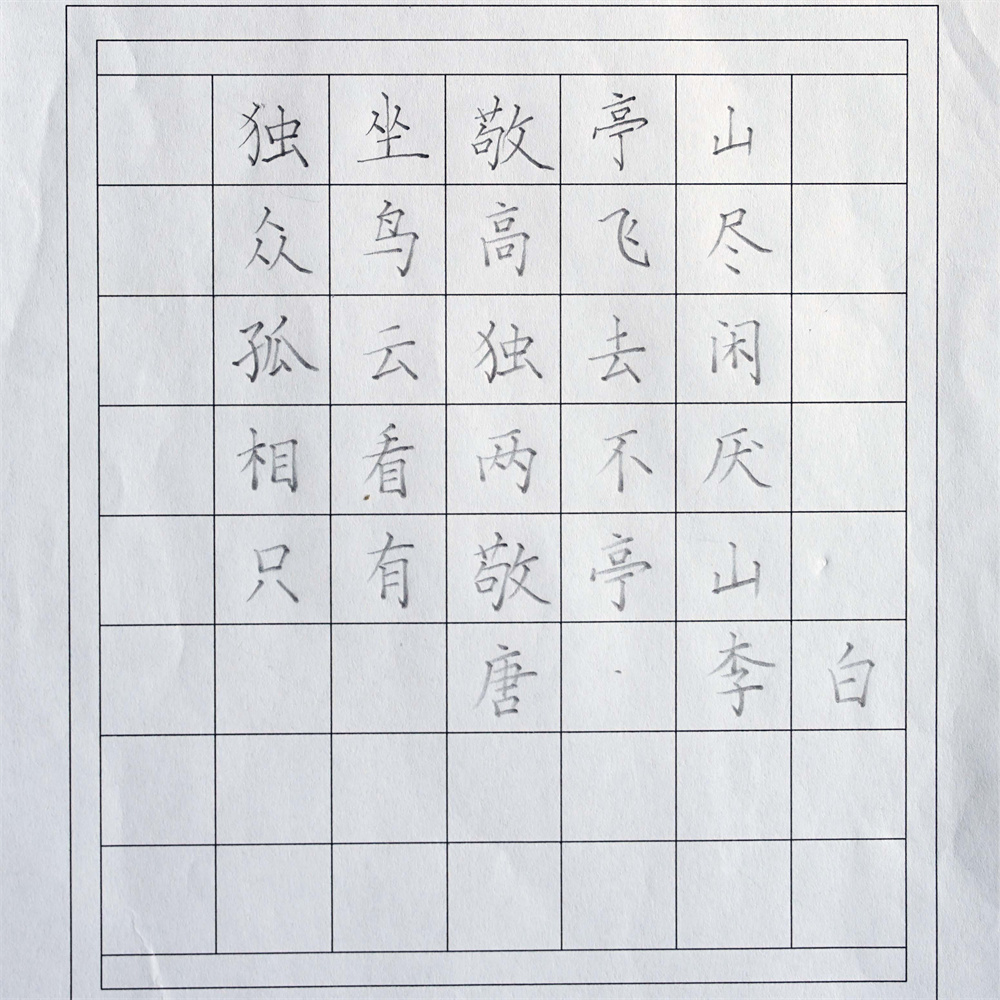 独坐敬亭山
众鸟高飞尽
孤云独去闲
相看两不厌
只有敬亭山
唐·李白